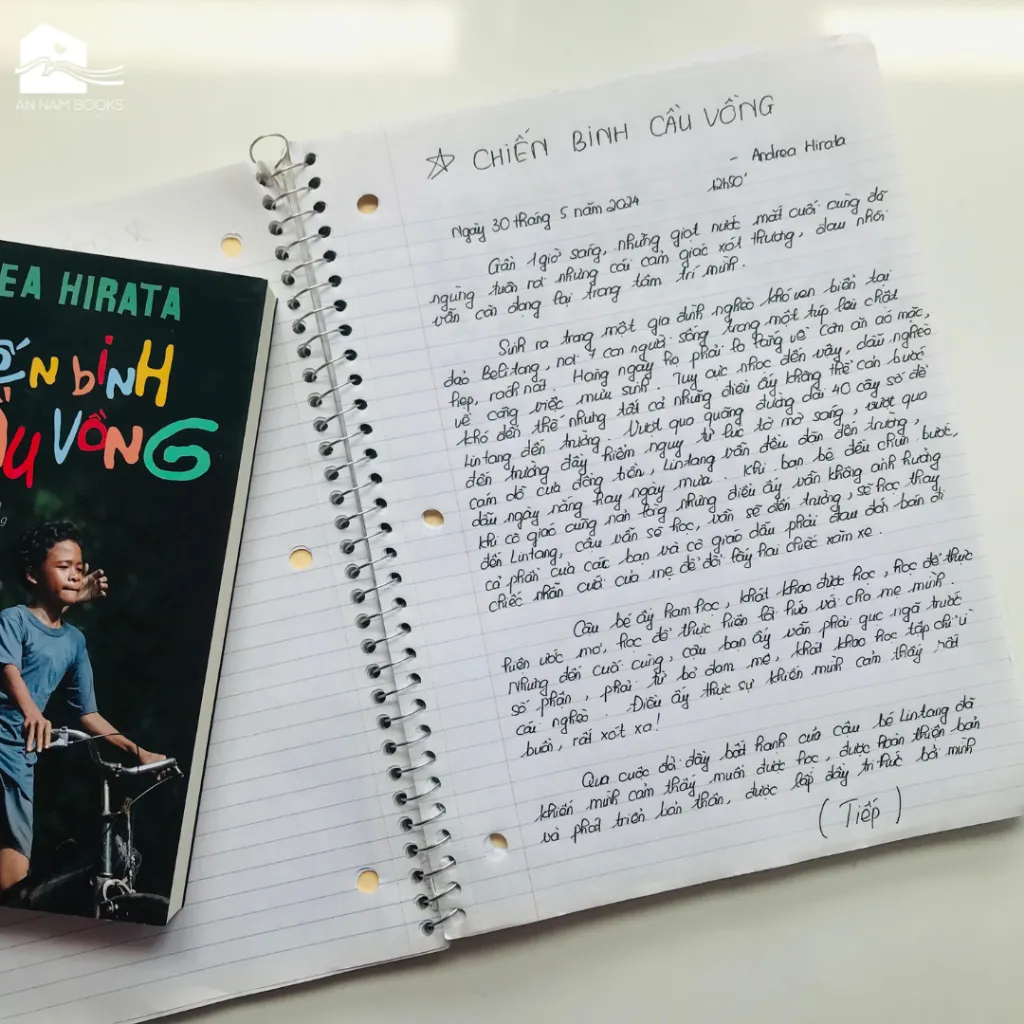 AN NAM BOOKS
EA HIRATA
ẾN BINH
ẦU VỒNG
☆ CHIẾN BINH CẦU VỒNG
- Andrea Hirata
Ngày 30 tháng 5 năm 2024 12h50'
Gần 1 giờ sáng, những giọt nước mắt cuối cùng đã
ngừng tuôn rơi nhưng cái cảm giác xót thương, đau nhói
vẫn còn đọng lại trong tâm trí mình.
Sinh ra trong một gia đình nghèo khó ven biển tại
đảo Belitong, nơi 7 con người sống trong một túp lều chật
hẹp, rách nát. Hàng ngày họ phải lo lắng về cơm ăn áo mặc,
về công việc mưu sinh. Tuy cực nhọc đến vậy, dẫu nghèo
khó đến thế nhưng tất cả những điều ấy không thể cản bước
Lintang đến trường. Vượt qua quãng đường dài 40 cây số để
đến trường đầy hiểm nguy từ lúc tờ mờ sáng, vượt qua
cám dỗ của đồng tiền, Lintang vẫn đều đặn đến trường,
dẫu ngày nắng hay ngày mưa. Khi bạn bè đều chùn bước,
khi cô giáo cũng nản lòng nhưng điều ấy vẫn không ảnh hưởng
đến Lintang, cậu vẫn sẽ học, vẫn sẽ đến trường, sẽ học thay
cả phần của các bạn và cô giáo dẫu phải đau đớn bán đi
chiếc nhẫn cưới của mẹ để đổi lấy hai chiếc xăm xe.
Cậu bé ấy ham học, khát khao được học, học để thực
hiện ước mơ, học để thực hiện lời hứa với cha mẹ mình.
Nhưng đến cuối cùng, cậu bạn ấy vẫn phải gục ngã trước
số phận, phải từ bỏ đam mê, khát khao học tập chỉ vì
cái nghèo. Điều ấy thực sự khiến mình cảm thấy rất
buồn, rất xót xa!
Qua cuộc đời đầy bất hạnh của cậu bé Lintang đã
khiến mình cảm thấy muốn được học, được hoàn thiện bản
và phát triển bản thân, được lấp đầy tri thức bởi mình
(Tiếp)